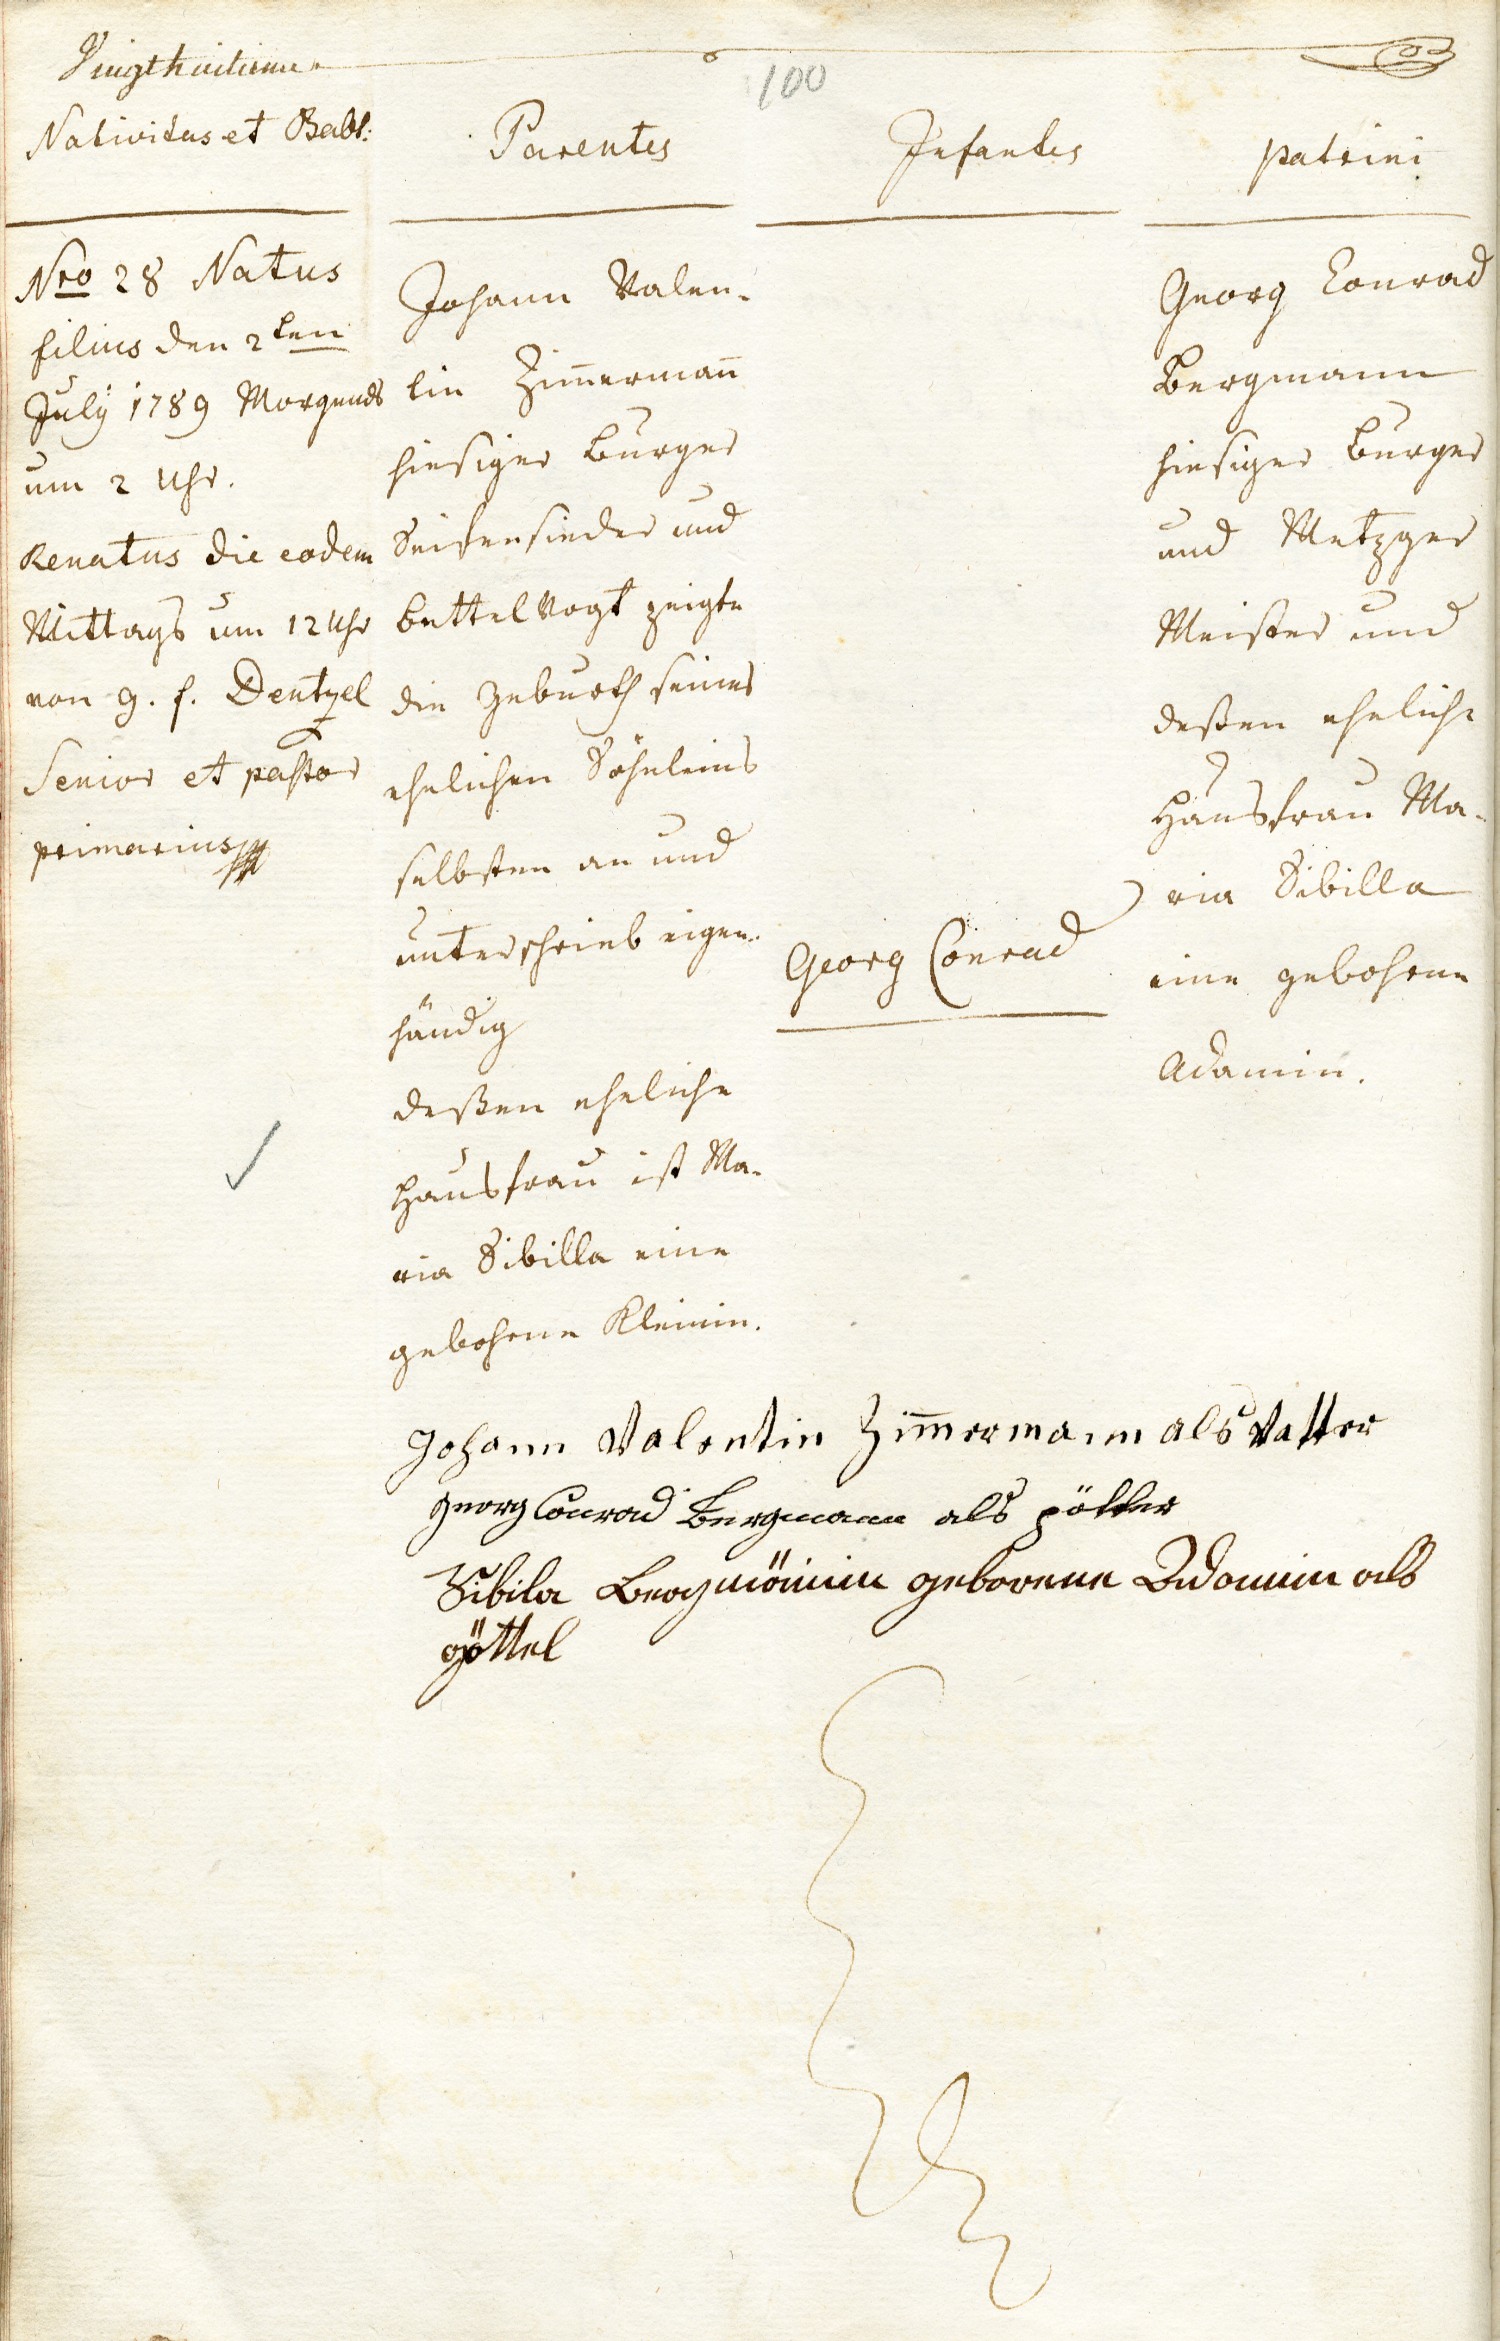 Vingthuitieme
100
Nativitas et Babt:
Nro 28 Natus
filius den 2ten
July 1789 Morgends
um 2 Uhr.
Renatus die eodem
Mittags um 12 Uhr
von G. f. Dentzel
Senior et pastor
primarius
Parentes
Johann Valen-
tin Zim̅erman̅
hiesiger Burger
Seifensieder und
bettelvogt zeigte
die Geburth seines
ehelichen Söhnleins
selbsten an und
unterschrieb eigen-
händig
deßen eheliche
Hausfrau ist Ma-
ria Sibilla eine
gebohrne Kleinin.
Infantes
Georg Conrad
patrini
Georg Conrad
Bergmann
hiesiger Burger
und Metzger
Meister und
deßen eheliche
Hausfrau Ma-
ria Sibilla
eine gebohrne
Adamin.
Johann Valentin Zim̅ermann als Vatter
Georg Conrad Bergmann als götter
Sibila Bergmännin geborene Adamin als
göttel